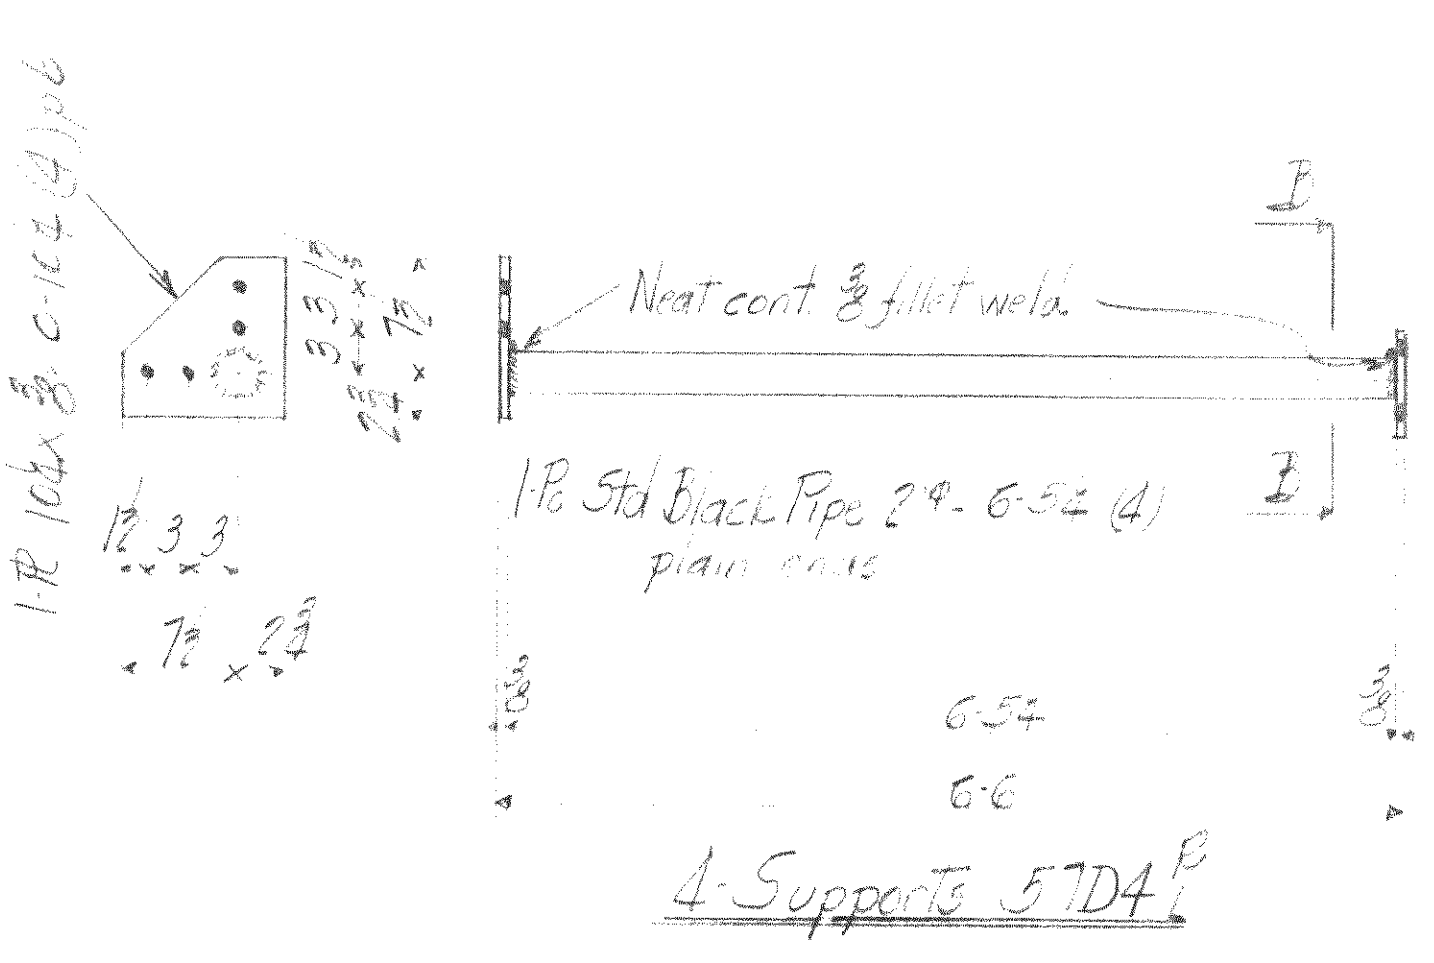 1-PL 10¼ x 3/8 0-10¼ (4) pb
1½ 3 3
7½ 2¾
1½ 3 3 2¾
7½
Neat cont. 3/8 fillet weld
B
B
1-Pc Std Black Pipe 2"φ - 6-5¼ (4)
plain ends
3/8 6-5¼ 3/8
6-6
4-Supports 57D4